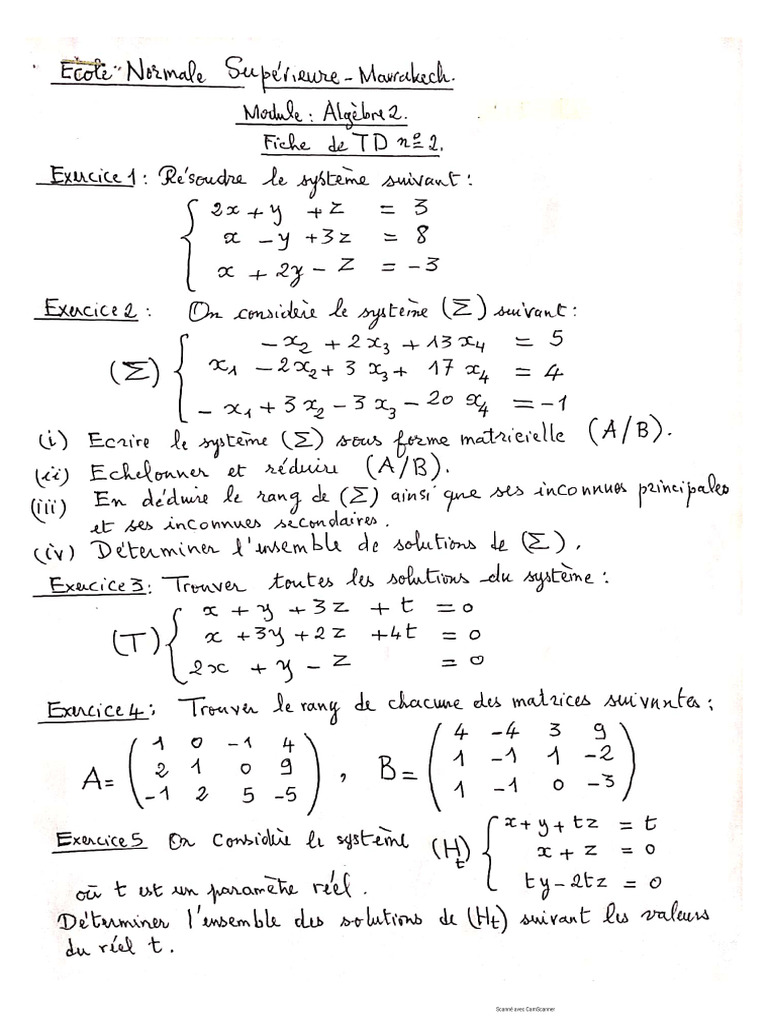 Ecole Normale Supérieure - Marrakech.
Module : Algèbre 2.
Fiche de TD nº 2.
Exercice 1 : Résoudre le système suivant :
2x + y + z = 3
x - y + 3z = 8
x + 2y - z = -3
Exercice 2 : On considère le système (Σ) suivant :
- x2 + 2x3 + 13x4 = 5
(Σ) { x1 - 2x2 + 3x3 + 17x4 = 4
- x1 + 3x2 - 3x3 - 20x4 = -1
(i) Ecrire le système (Σ) sous forme matricielle (A/B).
(ii) Echelonner et réduire (A/B).
(iii) En déduire le rang de (Σ) ainsi que ses inconnues principales
et ses inconnues secondaires.
(iv) Déterminer l'ensemble de solutions de (Σ).
Exercice 3 : Trouver toutes les solutions du système :
x + y + 3z + t = 0
(T) { x + 3y + 2z + 4t = 0
2x + y - z = 0
Exercice 4 : Trouver le rang de chacune des matrices suivantes :
1 0 -1 4 4 -4 3 9
A = 2 1 0 9 , B = 1 -1 1 -2
-1 2 5 -5 1 -1 0 -3
Exercice 5 On considère le système (Ht) { x + y + tz = t
x + z = 0
où t est un paramètre réel. ty - 2tz = 0
Déterminer l'ensemble des solutions de (Ht) suivant les valeurs
du réel t.
Scanné avec CamScanner